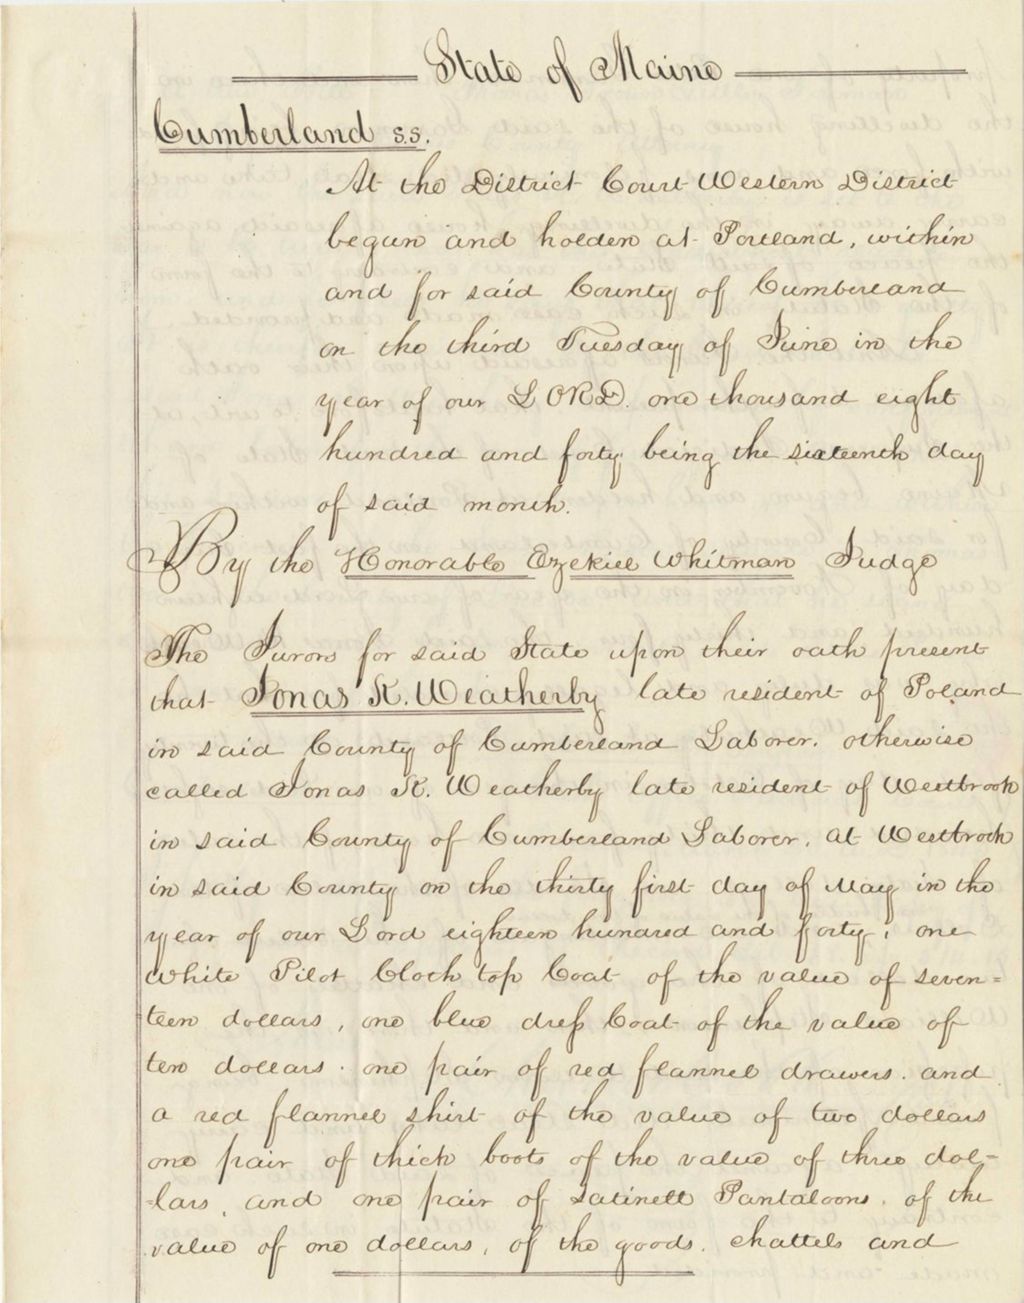 State of Maine
Cumberland s.s.
At the District Court Western District
begun and holden at Portland, within
and for said County of Cumberland
on the third Tuesday of June in the
year of our LORD. one thousand eight
hundred and forty being the sixteenth day
of said month.
By the Honorable Ezekiel Whitman Judge
The Jurors for said State upon their oath present
that Jonas K. Weatherby late resident of Poland
in said County of Cumberland Laborer. otherwise
called Jonas K. Weatherby late resident of Westbrook
in said County of Cumberland Laborer, at Westbrook
in said County on the thirty first day of May in the
year of our Lord eighteen hundred and forty, one
white Pilot Cloth top Coat of the value of seven=
teen dollars, one blue dress Coat of the value of
ten dollars. one pair of red flannel drawers. and
a red flannel shirt of the value of two dollars
one pair of thick boots of the value of three dol=
-lars, and one pair of satinett Pantaloons, of the
value of one dollars, of the goods, chattels and